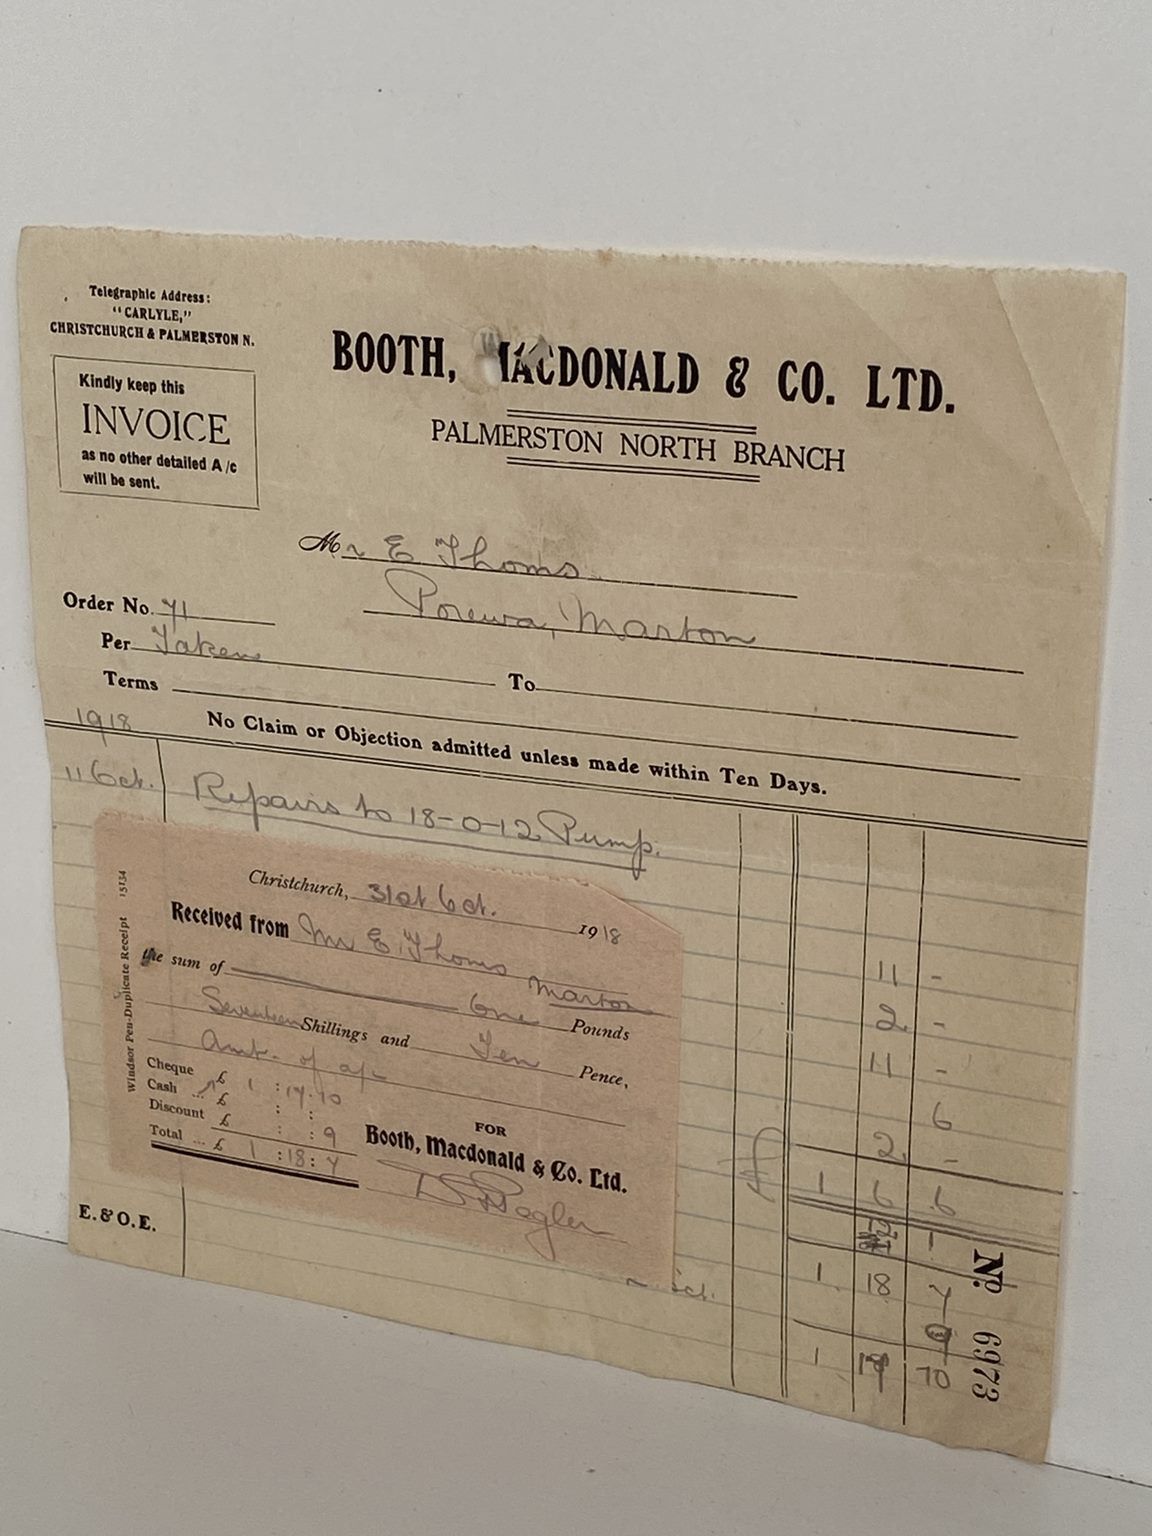 Telegraphic Address:
"CARLYLE,"
CHRISTCHURCH & PALMERSTON N.
Kindly keep this
INVOICE
as no other detailed A/c
will be sent.
BOOTH, MACDONALD & CO. LTD.
PALMERSTON NORTH BRANCH
Mr E Thoms
Porewa, Marton
Order No. 71
Per Taken
To
Terms
1918
No Claim or Objection admitted unless made within Ten Days.
11 Oct. Repairs to 18-0-12 Pump.
Windsor Pen-Duplicate Receipt 15134
Christchurch, 31st Oct. 1918
Received from Mr E. Thoms
Marton
the sum of One Pounds
Seventeen Shillings and Ten Pence,
Amt. of a/c
Cheque £ 1 : 17 . 10
Cash ... £ : :
Discount £ : : 9
Total ... £ 1 : 18 : 7
FOR
Booth, Macdonald & Co. Ltd.
11 -
2 -
11 -
6
2 -
£ 1 6 6
1
1 18 7
9
1 17 10
E. & O. E.
No. 6973